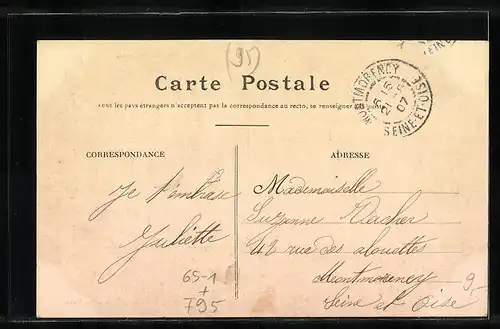 (95)
Carte Postale
Tous les pays étrangers n'acceptent pas la correspondance au recto, se renseigner
MONTMORENCY
07
SEINE-ET-OISE
CORRESPONDANCE
ADRESSE
Je t'embrasse
Juliette
Mademoiselle
Suzanne
42 rue des alouettes
Montmorency
Seine et Oise
65-1
+
795
9-